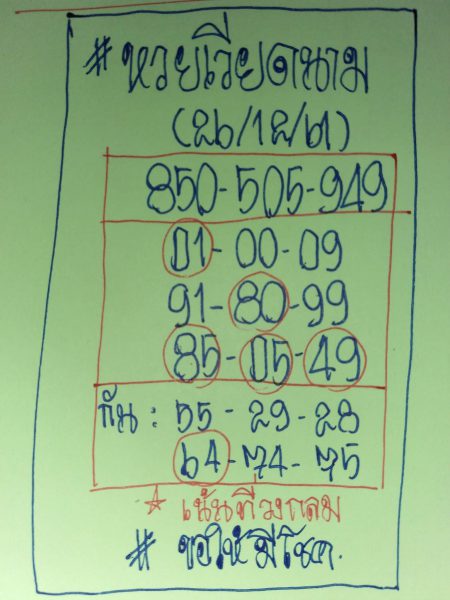 # หวยเวียดนาม
(26/12/61)
850-505-949
01-00-09
91-80-99
85-05-49
กัน : 55-29-28
64-74-75
☆ เน้นที่วงกลม
# ขอให้มีโชค.